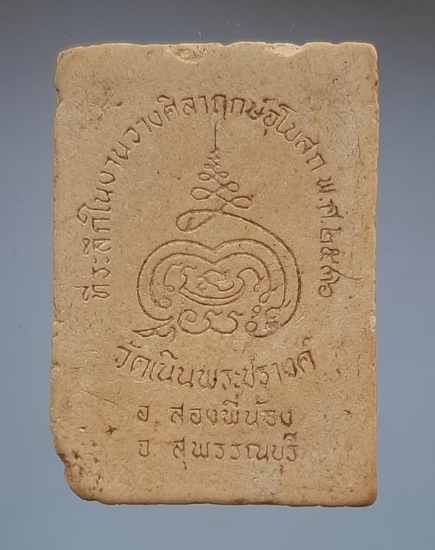 ที่ระลึกในงานวางศิลาฤกษ์อุโบสถ พ.ศ.
วัดเนินพระปรางค์
อ. สองพี่น้อง
จ สุพรรณบุรี